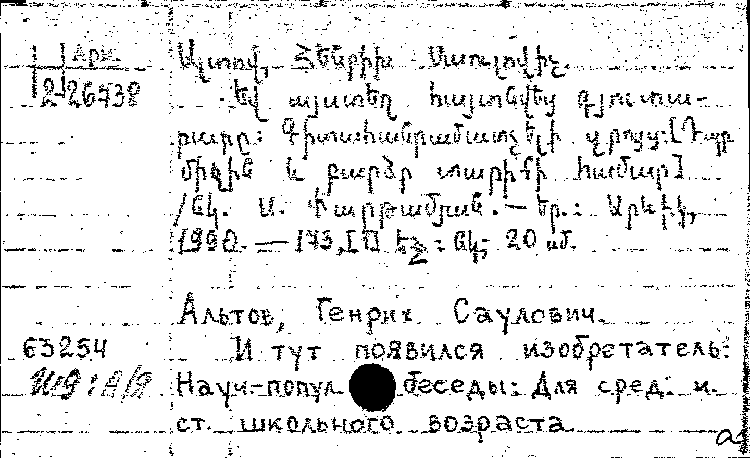 Арм.
2-26738
Ալտով, Հենրիխ Սաուլովիչ.
Եվ այստեղ հայտնվեց գյուտա-
րարը: Գիտահանրամատչելի զրույց:[Դպր
միջին և բարձր տարիքի համար]
/Նկ. Ա. Փարթամյան. — Եր.: Արևիկ,
1990. — 173,[1] էջ: նկ; 20 սմ.
Альтов, Генрих Саулович.
63254
И тут появился изобретатель:
Науч-попул беседы: Для сред. и
ст. школьного возраста